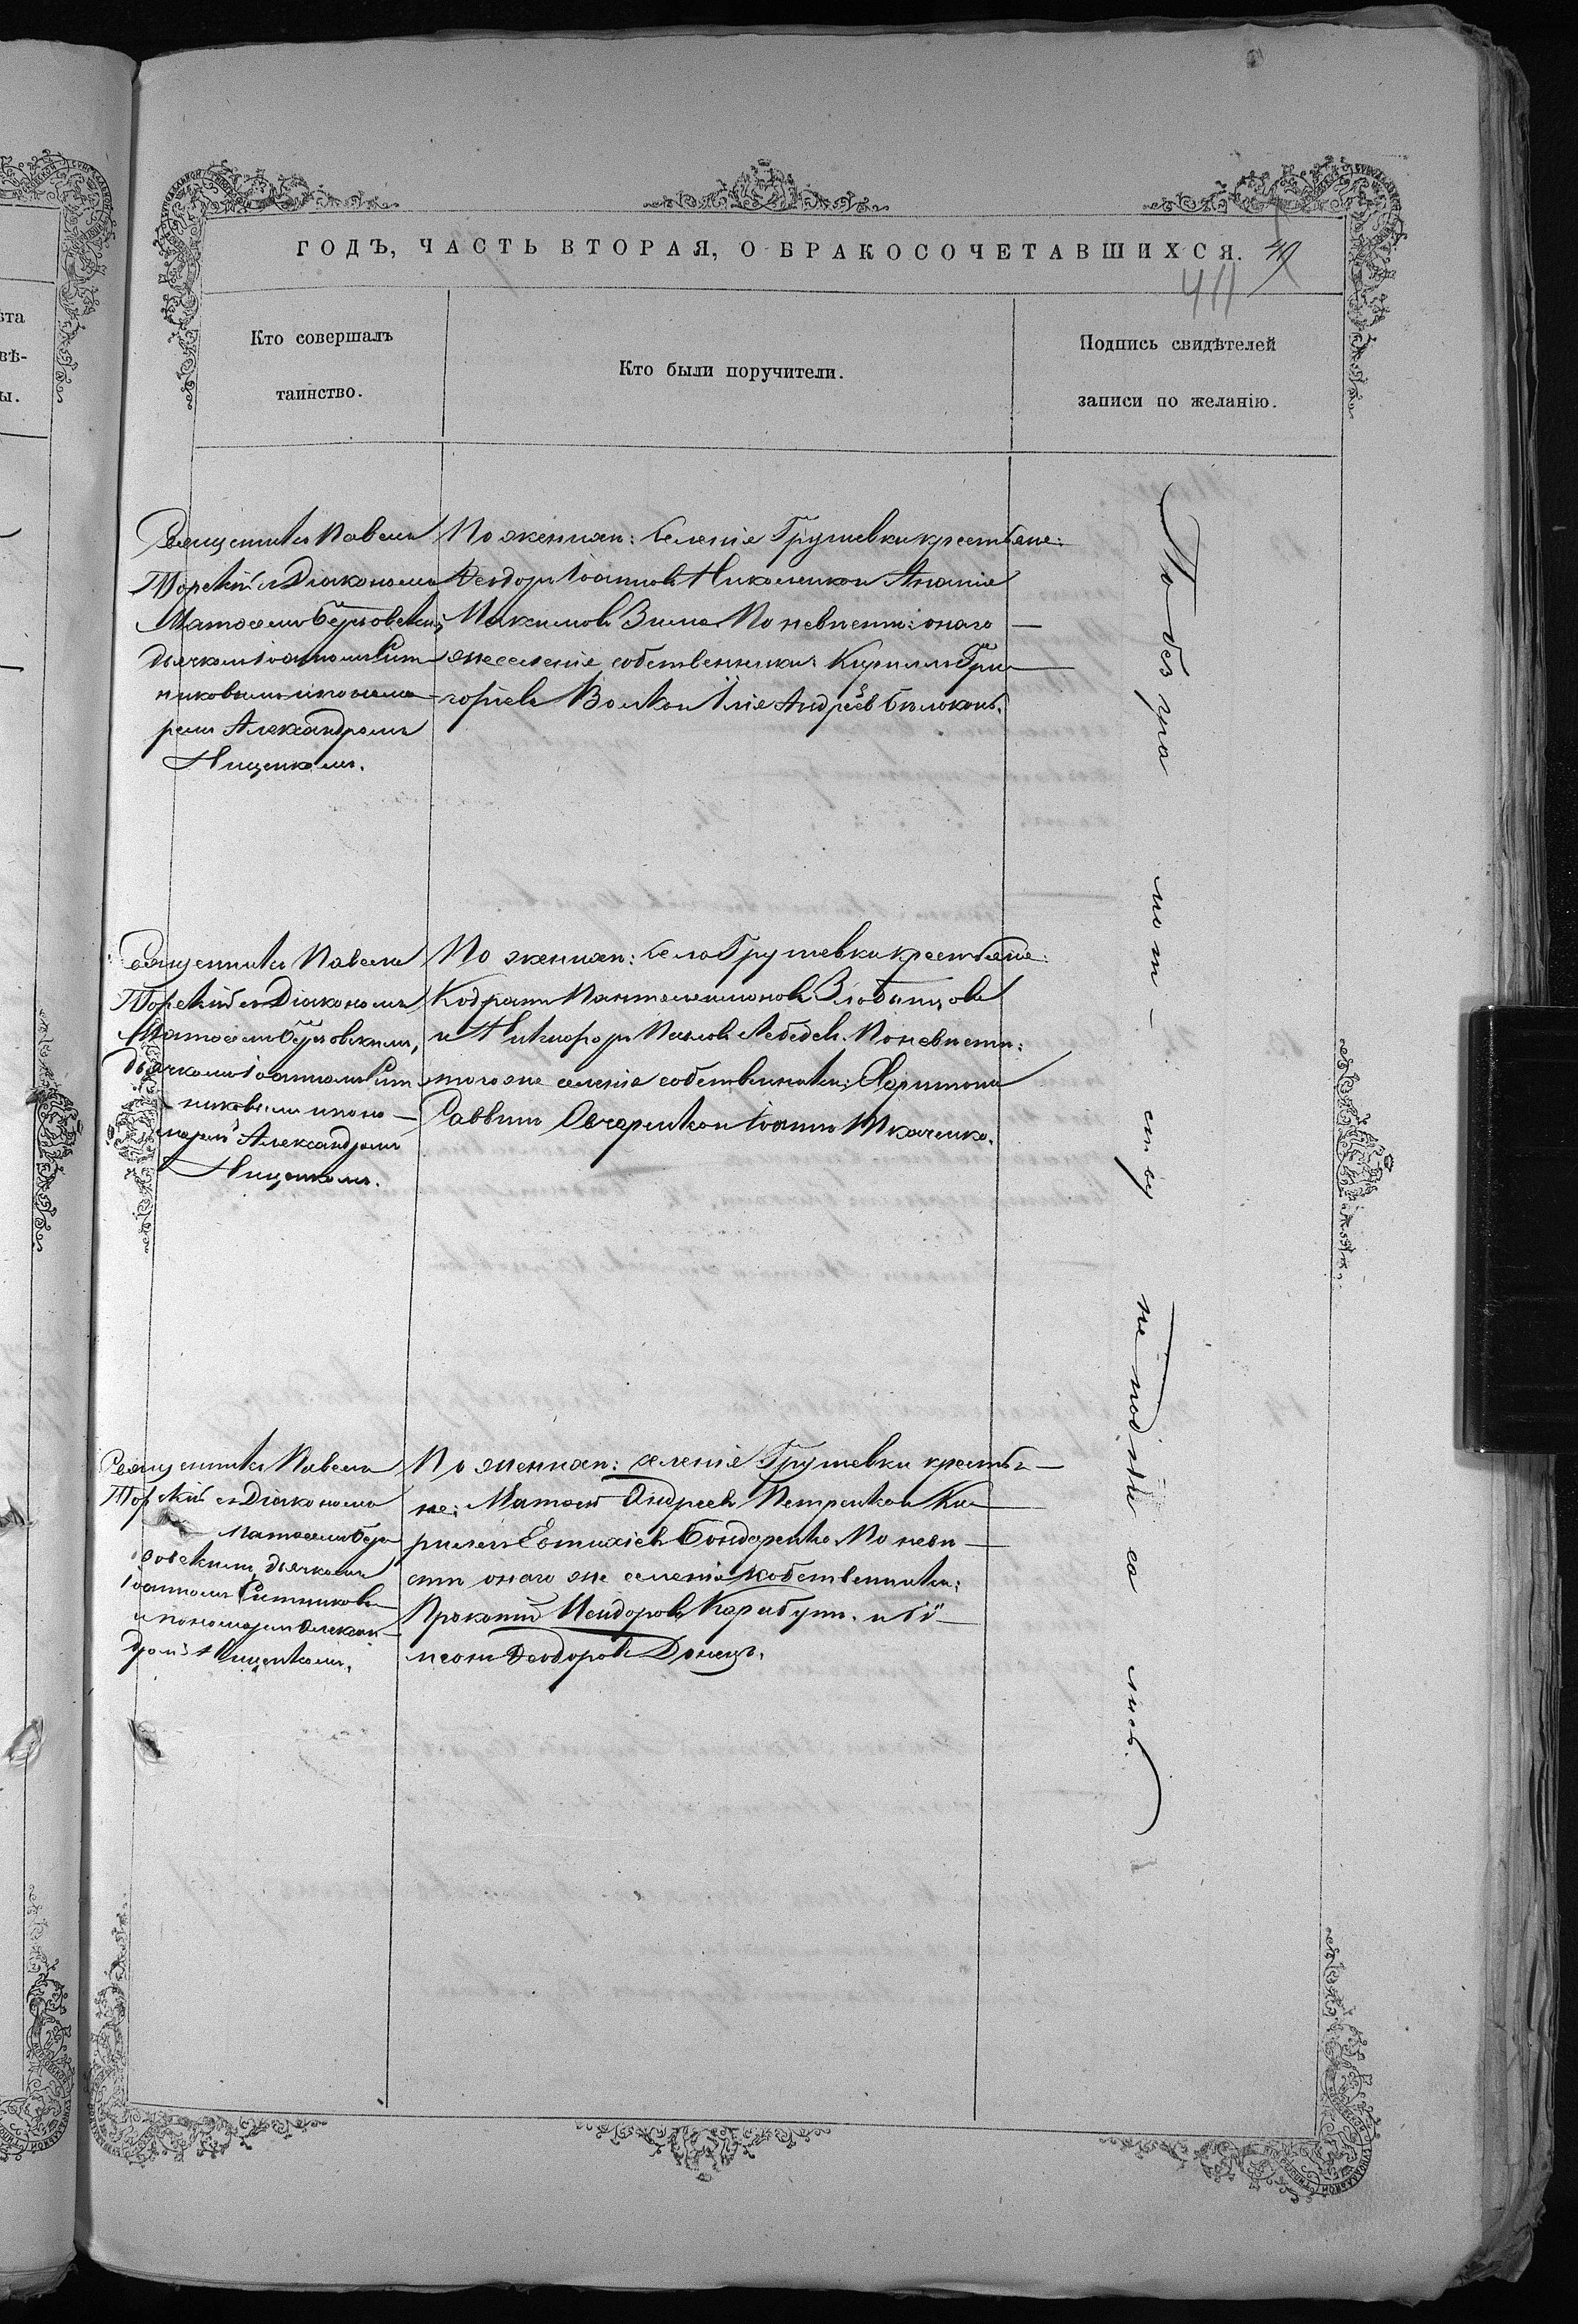 ГОДЪ, ЧАСТЬ ВТОРАЯ, О БРАКОСОЧЕТАВШИХСЯ.
411
Кто совершалъ
таинство.
Кто были поручители.
Подпись свидѣтелей
записи по желанію.
Священникъ Павелъ
Торскій съ Діакономъ
Матѳеемъ
дьячкомъ Іоанномъ Сит-
никовымъ и понома-
ремъ Александромъ
Нищенкомъ.
По женихѣ: селенія Грушевки крестьяне:
Ѳеодоръ Іоанновъ Николенко и Ананія
Максимовъ Зима. По невѣстѣ: онаго
же селенія собственники: Кириллъ Гри-
горьевъ Волкъ и Илія Андреевъ Бѣлоконь.
Священникъ Павелъ
Торскій съ Діакономъ
Матѳеемъ
дьячкомъ Іоанномъ Сит-
никовымъ и поно-
маремъ Александромъ
Нищенкомъ.
По женихѣ: села Грушевки крестьяне:
Кодратъ Пантелеимоновъ
и Никифоръ Павловъ Лебедевъ. По невѣстѣ:
того же селенія собственники: Харитонъ
Саввинъ Овчаренко и Іоаннъ Ткаченко.
Священникъ Павелъ
Торскій съ Діакономъ
Матѳеемъ
дьячкомъ
Іоанномъ Ситниковы
и пономаремъ Алексан-
дромъ Нищенкомъ.
По женихѣ: селенія Грушевки крестья-
не: Матѳей Андреевъ Петренко и Ки-
риллъ Евтихіевъ Бондаренко. По невѣ-
стѣ онаго же селенія собственники:
Прокопій Исидоровъ Карабутъ. и Сѵ-
меонъ Ѳеодоровъ Донецъ.
По безгра мот- ству не подпи са лись.